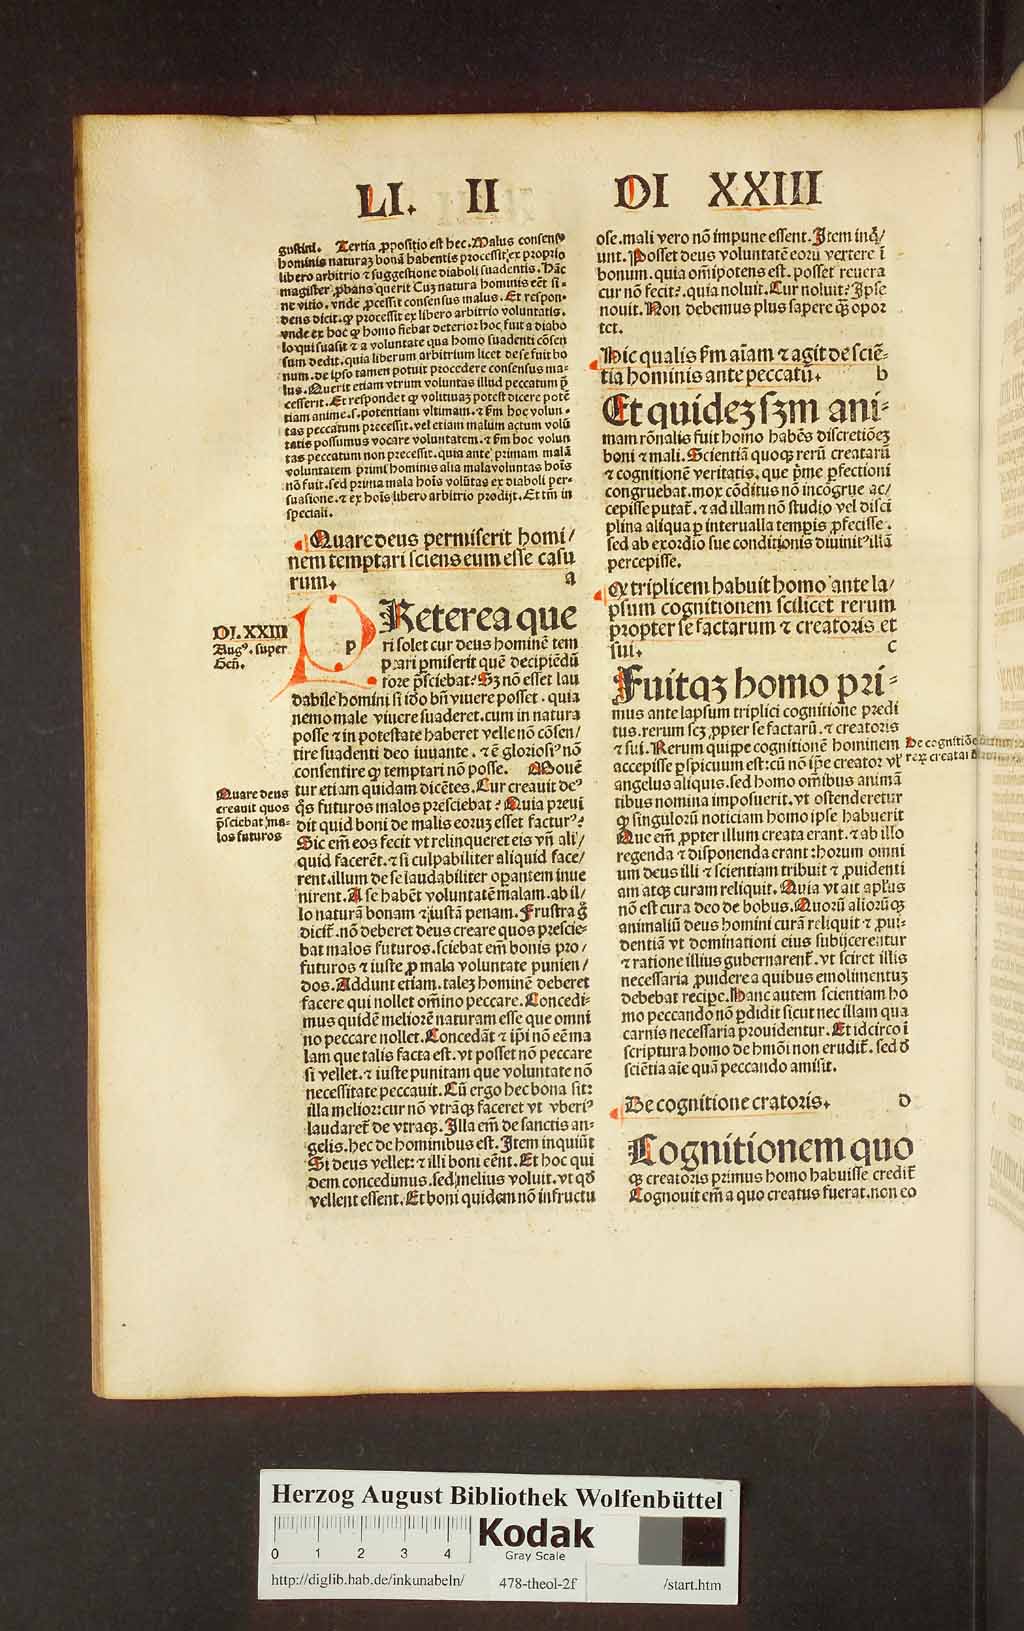 LI. II DI XXIII
gustini. Tertia ꝓpositio est hec. Malus consensꝰ
hominis naturaꝫ bonā habentis processit ex proprio
libero arbitrio ⁊ suggestione diaboli suadentis. Hāc
magister ꝓbans querit Cuꝫ natura hominis eēt si-
ne vitio. vnde ꝓcessit consensus malus. Et respon-
dens dicit. ꝙ processit ex libero arbitrio voluntatis.
vnde ex hoc ꝙ homo fiebat deterior: hoc fuit a diabo
lo qui suasit ⁊ a voluntate qua homo suadenti cōsen
sum dedit. quia liberum arbitrium licet de se fuit bo
num. de ipso tamen potuit procedere consensus ma-
lus. Querit etiam vtrum voluntas illud peccatum p̄
cesserit. Et respondet ꝙ volitiuaꝫ potest dicere potē
tiam anime. s. potentiam vltimam. ⁊ ẜm hoc volun-
tas peccatum precessit. vel etiam malum actum volū
tatis possumus vocare voluntatem. ⁊ ẜm hoc volun
tas peccatum non precessit. quia ante primam malā
voluntatem primi hominis alia mala voluntas hoīs
nō fuit. sed prima mala hoīs volūtas ex diaboli per-
suasione. ⁊ ex hoīs libero arbitrio prodijt. Et tm̄ in
speciali.
Quare deus permiserit homi/
nem temptari sciens eum esse casu
rum. a
DI. XXIII
Augꝰ. super
Gen̄.
p
Reterea que
ri solet cur deus hominē tem
ptari ꝑmiserit quē decipiēdū
fore p̄sciebat? Sꝫ nō esset lau
dabile homini si iō bn̄ viuere posset. quia
nemo male viuere suaderet. cum in natura
posse ⁊ in potestate haberet velle nō cōsen/
tire suadenti deo iuuante. ⁊ ē gloriosiꝰ nō
consentire ꝙ temptari nō posse. Mouē
Quare deus
creauit quos
p̄sciebat ma-
los futuros
tur etiam quidam dicētes. Cur creauit deꝰ
q̄s futuros malos presciebat? Quia preui
dit quid boni de malis eoruꝫ esset facturꝰ?
Sic em̄ eos fecit vt relinqueret eis vn̄ ali/
quid facerēt. ⁊ si culpabiliter aliquid face/
rent. illum de se laudabiliter oꝑantem inue
nirent. A se habēt voluntatē malam. ab il/
lo naturā bonam ⁊ iustā penam. Frustra g̊
dicit̄. nō deberet deus creare quos prescie-
bat malos futuros. sciebat em̄ bonis pro/
futuros ⁊ iuste ꝓ mala voluntate punien/
dos. Addunt etiam. taleꝫ hominē deberet
facere qui nollet om̄ino peccare. Concedi-
mus quidē meliorē naturam esse que omni
no peccare nollet. Concedāt ⁊ ip̄i nō eē ma
lam que talis facta est. vt posset nō peccare
si vellet. ⁊ iuste punitam que voluntate nō
necessitate peccauit. Cū ergo hec bona sit:
illa melior: cur nō vtrāqꝫ faceret vt vberiꝰ
laudaret̄ de vtraqꝫ. Illa em̄ de sanctis an-
gelis. hec de hominibus est. Item inquiūt
Si deus vellet: ⁊ illi boni eēnt. Et hoc qui
dem concedimus. sed melius voluit. vt qd̄
vellent essent. Et boni quidem nō infructu
ose. mali vero nō impune essent. Item inq̄/
unt. Posset deus voluntatē eorū vertere ī
bonum. quia om̄ipotens est. posset reuera
cur nō fecit?. quia noluit. Cur noluit? Ipse
nouit. Non debemus plus sapere q̄ꝫ opor
tet.
Hic qualis ẜm aīam ⁊ agit de sciē-
tia hominis ante peccatū. b
Et quideꝫ ẜꝫm ani-
mam rōnalis fuit homo habēs discretiōeꝫ
boni ⁊ mali. Scientiā quoqꝫ rerū creatarū
⁊ cognitionē veritatis. que p̄me ꝑfectioni
congruebat. mox cōditus nō incōgrue ac/
cepisse putat̄. ⁊ ad illam nō studio vel disci
plina aliqua ꝑ interualla temꝑis ꝓfecisse.
sed ab exordio sue conditionis diuinitꝰ illā
percepisse.
ꝙ triplicem habuit homo ante la/
psum cognitionem scilicet rerum
propter se factarum ⁊ creatoris et
sui. c
Fuitqꝫ homo pri-
mus ante lapsum triplici cognitione predi
tus. rerum scꝫ ꝓpter se factarū. ⁊ creatoris
⁊ sui. Rerum quippe cognitionē hominem
accepisse ꝑspicuum est: cū nō ip̄e creator vl̄
De cognitiōe
rerꝝ creatarū
angelus aliquis. sed homo om̄ibus animā
tibus nomina imposuerit. vt ostenderetur
ꝙ singulorū noticiam homo ipse habuerit
Que em̄ ꝓpter illum creata erant. ⁊ ab illo
regenda ⁊ disponenda erant: horum omni
um deus illi ⁊ scientiam tribuit ⁊ ꝓuidenti
am atqꝫ curam reliquit. Quia vt ait apl̄us
nō est cura deo de bobus. Quorū aliorūqꝫ
animaliū deus homini curā reliquit ⁊ ꝓui-
dentiā vt dominationi eius subijcerentur
⁊ ratione illius gubernarent̄. vt sciret illis
necessaria ꝓuidere a quibus emolimentuꝫ
debebat reciꝑe. Hanc autem scientiam ho
mo peccando nō ꝑdidit sicut nec illam qua
carnis necessaria prouidentur. Et idcirco ī
scriptura homo de hmōi non erudit̄. sed d̄
sciētia aīe quā peccando amisit.
De cognitione cratoris. d
Cognitionem quo
qꝫ creatoris primus homo habuisse credit̄
Cognouit em̄ a quo creatus fuerat. non eo
Herzog August Bibliothek Wolfenbüttel
0 1 2 3 4
Kodak
Gray Scale
http://diglib.hab.de/inkunabeln/ 478-theol-2f /start.htm